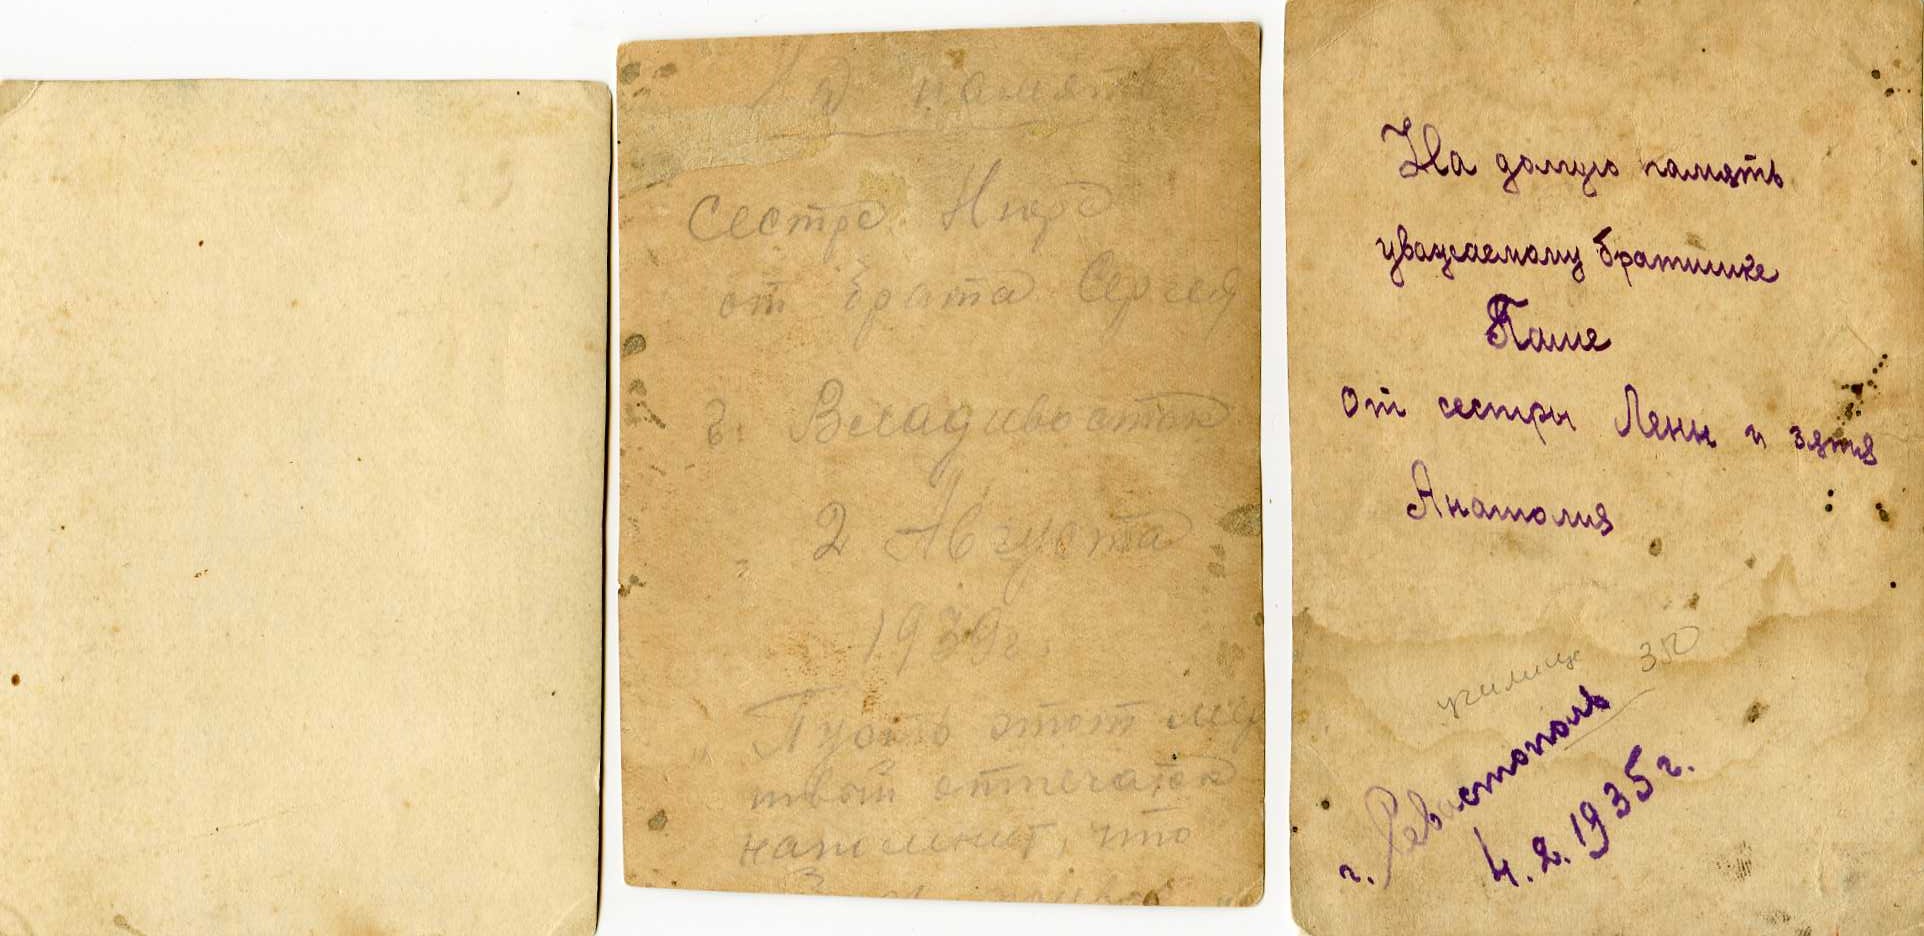 На память
Сестре Нюре
от брата Сергея
г. Владивосток
2 Августа
1939г.
„Пусть этот мёр
твый отпечаток
напомнит, что
На долгую память
уважаемому братишке
Паше
от сестры Лены и зятя
Анатолия
училище 350
г. Севастополь
4.2.1935г.